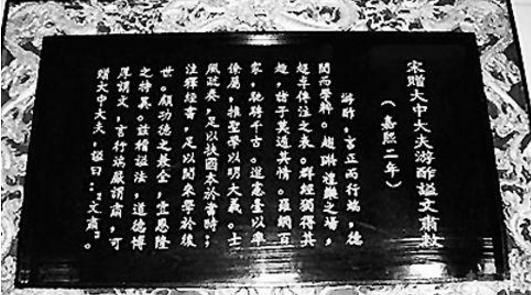 宋贈大中大夫游酢諡文肅敕
(嘉熙二年)
游酢,言正而行端,德
閎而學粹。趨蹌禮樂之場,
超卓傳注之表。群經獨得其
趣,諸子莫遁其情。羅網百
家,馳騁千古。進憲臺以率
僚屬,推聖學以明大義。士
風奏,足以扶國本於當時;
注釋經書,足以開來學於後
世。顧功德之兼全,宜恩隆
之特異。茲稽諡法,道德博
厚謂文,言行端嚴謂肅,可
贈大中大夫,諡曰:“文肅”。